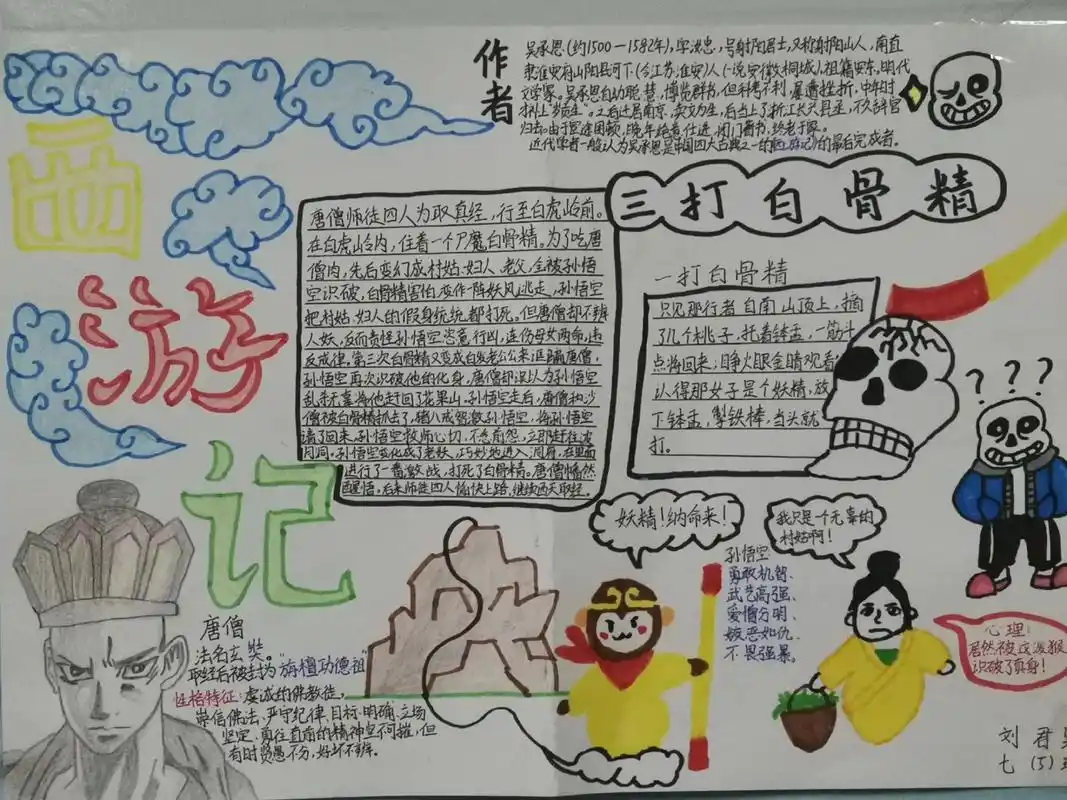 西游记
作者
吴承恩(约1500—1582年),字汝忠,号射阳居士,又称射阳山人,南直
隶淮安府山阳县河下(今江苏淮安)人(一说安徽桐城),祖籍安东,明代
文学家。吴承恩自幼聪慧,博览群书,但科考不利,屡遭挫折,中年时
才补上"岁贡生"。之后迁居南京,卖文为生,后当上了浙江长兴县丞,不久辞官
归去。由于宦途困顿,晚年绝意仕进,闭门著书,终老于家。
近代学者一般认为吴承恩是中国四大古典之一的《西游记》的最后完成者。
三打白骨精
唐僧师徒四人为取真经,行至白虎岭前。
在白虎岭内,住着一个尸魔白骨精。为了吃唐
僧肉,先后变幻成村姑、妇人、老父,全被孙悟
空识破,白骨精害怕,变作一阵妖风逃走。孙悟空
把村姑、妇人的假身统统都打死。但唐僧却不辨
人妖,反而责怪孙悟空恣意行凶,连伤母女两命,违
反戒律。第三次白骨精又变成白发老公公来诓骗唐僧,
孙悟空再次识破他的化身,唐僧却误以为孙悟空
乱杀无辜将他赶回了花果山。孙悟空走后,唐僧和沙
僧被白骨精抓去了,猪八戒智激孙悟空,将孙悟空
请了回来。孙悟空救师心切,不念前怨,立即赶往波
月洞。孙悟空变化成了老妖,巧妙地进入洞府,在里面
进行了一番激战,打死了白骨精。唐僧幡然
醒悟,后来师徒四人愉快上路,继续西天取经。
一打白骨精
只见那行者自南山顶上,摘
了几个桃子,托着钵盂,一筋斗
点将回来;睁火眼金睛观看
认得那女子是个妖精,放
下钵盂,掣铁棒,当头就
打。
? ? ?
妖精!纳命来!
我只是个无辜的
村姑啊!
孙悟空
勇敢机智、
武艺高强、
爱憎分明、
嫉恶如仇、
不畏强暴。
心理:
居然被这泼猴
识破了真身!
唐僧
法名玄奘。
取经后被封为"旃檀功德祖"
性格特征:虔诚的佛教徒,
崇信佛法、严守纪律、目标明确、立场
坚定、勇往直前的精神坚不可摧,但
有时贤愚不分,好坏不辨。
刘君
七(5)